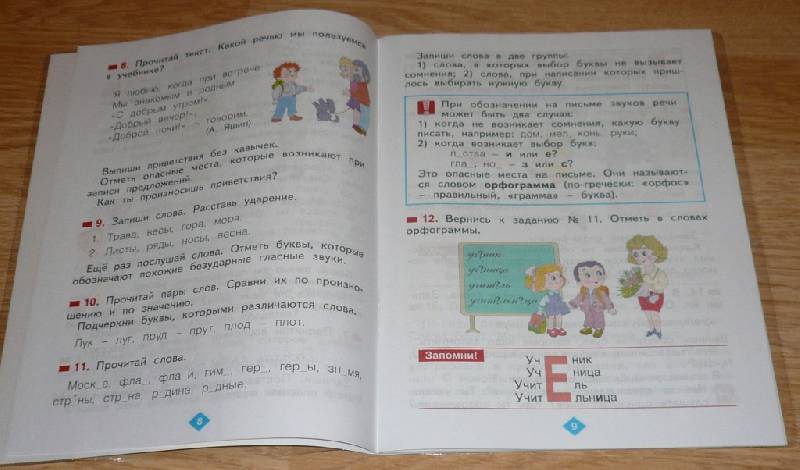 8. Прочитай текст. Какой речью мы пользуемся
в учебнике?
Я люблю, когда при встрече
Мы знакомым и родным
«С добрым утром!»,
«Добрый вечер!»,
«Доброй ночи!» — говорим.
(А. Яшин)
Выпиши приветствия без кавычек.
Отметь опасные места, которые возникают при
записи предложений.
Как ты произносишь приветствия?
9. Запиши слова. Расставь ударение.
1. Трава, весы, гора, моря.
2. Листы, ряды, носы, весна.
Ещё раз послушай слова. Отметь буквы, которые
обозначают похожие безударные гласные звуки.
10. Прочитай пары слов. Сравни их по произно-
шению и по значению.
Подчеркни буквы, которыми различаются слова.
Лук – луг, пруд – прут, плод – плот.
11. Прочитай слова.
Моск_а, фла_, фла_и, гим_, гер_, гер_ы, зи_мя,
стр_ны, стр_на, р_дина, р_дные.
8
Запиши слова в две группы:
1) слова, в которых выбор буквы не вызывает
сомнения; 2) слова, при написании которых приш-
лось выбирать нужную букву.
При обозначении на письме звуков речи
может быть два случая:
1) когда не возникает сомнения, какую букву
писать, например: дом, мел, конь, руки;
2) когда возникает выбор букв:
л_ства – и или е?
гла_, но_ – з или с?
Это опасные места на письме. Они называют-
ся словом орфограмма (по-гречески: «орфос»
– правильный, «грамма» – буква).
12. Вернись к заданию № 11. Отметь в словах
орфограммы.
ученик
ученица
учитель
учительница
Запомни!
Уч Е ник
Уч Е ница
Учит Е ль
Учит Е льница
9